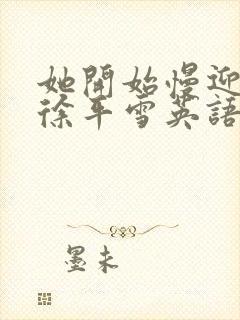 她開始慢迎
徐平雪英語
墨未